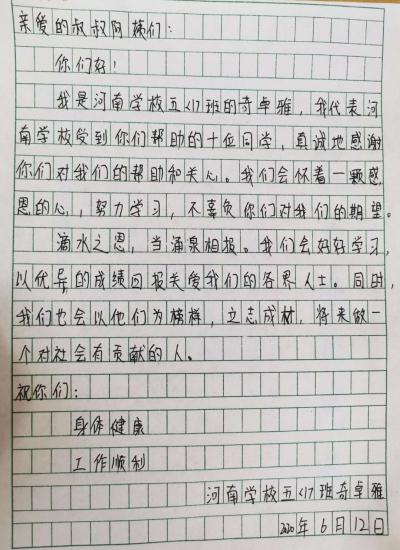 亲爱的叔叔阿姨们：
你们好！
我是河南学校五<17班的奇卓雅，我代表河
南学校受到你们帮助的十位同学，真诚地感谢
你们对我们的帮助和关心。我们会怀着一颗感
恩的心，努力学习，不辜负你们对我们的期望。
滴水之恩，当涌泉相报。我们会好好学习，
以优异的成绩回报关爱我们的各界人士。同时，
我们也会以他们为榜样，立志成材，将来做一
个对社会有贡献的人。
祝你们：
身体健康
工作顺利
河南学校五<17班奇卓雅
2020年6月12日